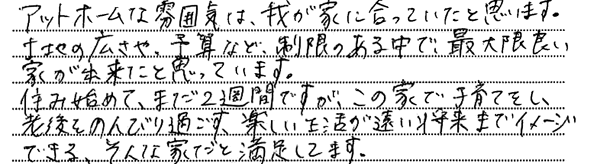 アットホームな雰囲気は、我が家に合っていたと思います。
土地の広さや、予算など、制限のある中で、最大限良い
家が出来たと思っています。
住み始めて、まだ2週間ですが、この家で子育てをし、
老後をのんびり過ごす、楽しい生活が遠い将来までイメージ
できる、そんな家だと満足してます。